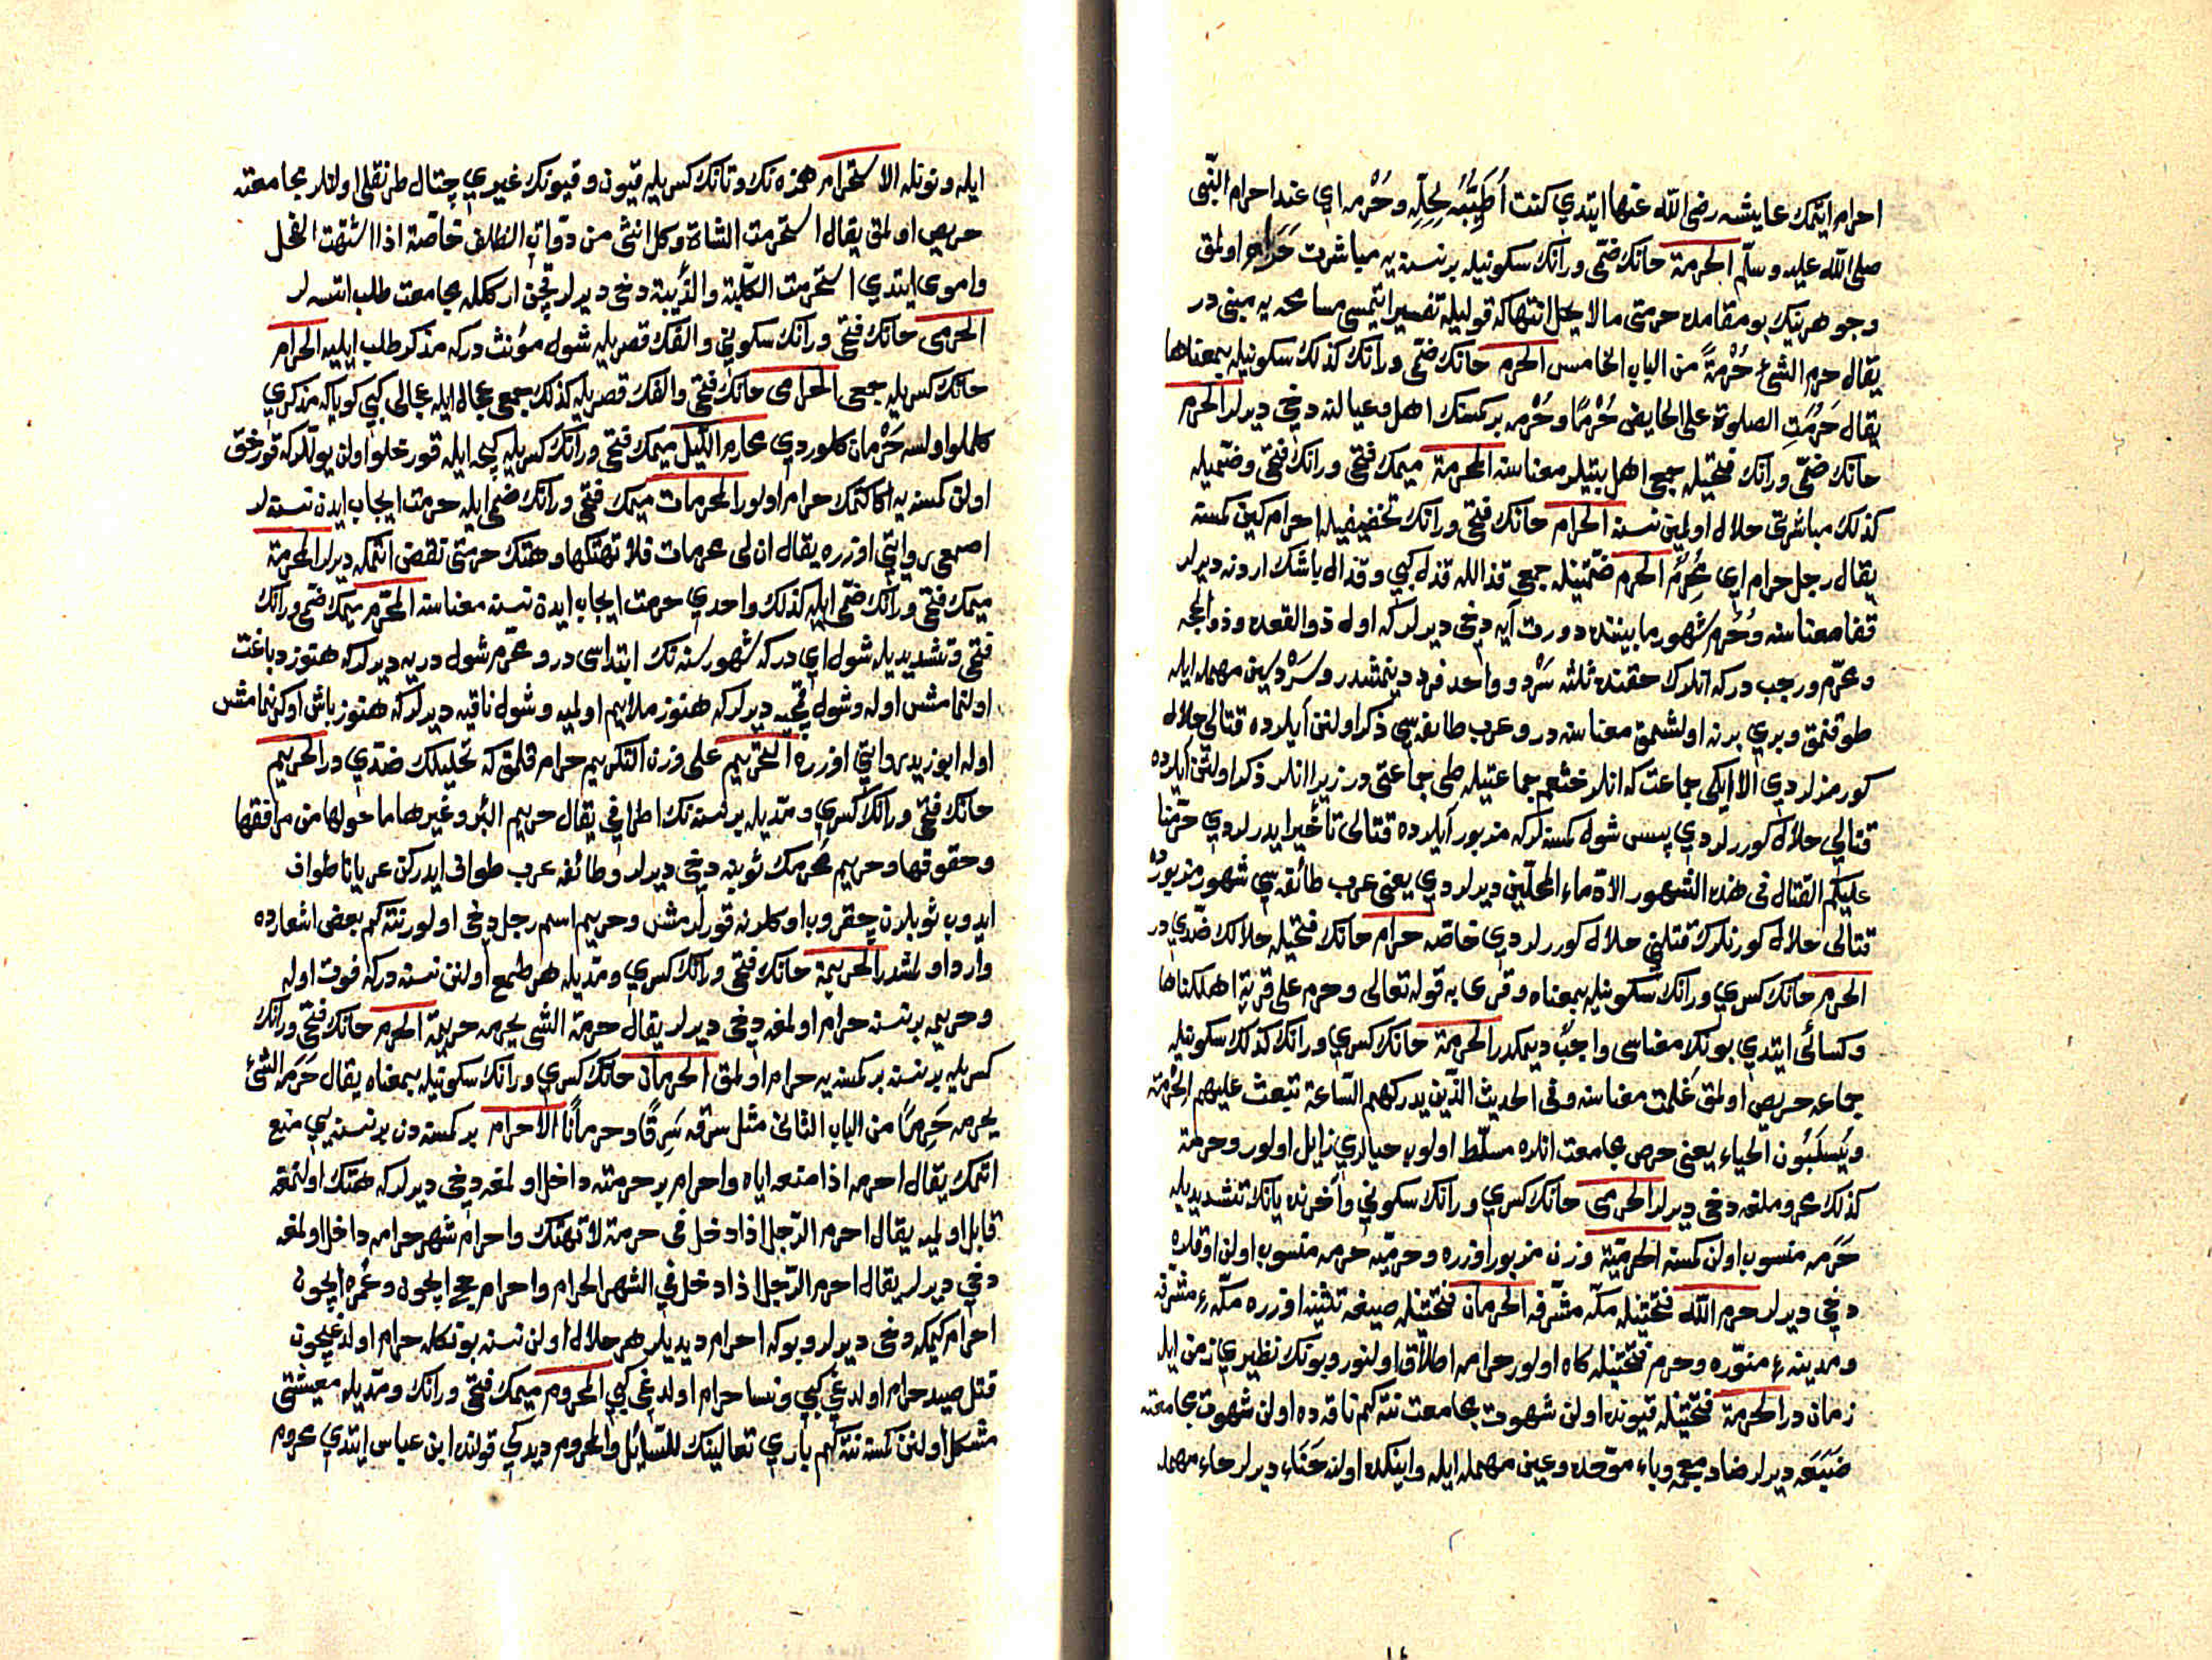 احرام ايتمك عايشه رضى الله عنها ايتدي كنت أُطَيِّبُه لِحِلِّهِ وحُرْمه اي عند احرام النّبى
صلى الله عليه وسلّم الحرمة حانك ضمّى ورانك سكونيله بر نسنه يه مباشرت حَرام اولمق
وجوهرينك بو مقامده حرمتى ما لا يحل انتهاكه قوليله تفسير ايتمسى مسامحه يه مبنى در
يقال حرم الشئ حُرْمةً من الباب الخامس الحرم حانك ضمّى ورانك كذلك سكونيله بمعناها
يقال حَرُمَتِ الصلوة على الحايض حُرْمًا وحُرْمه بر كمسنك اهل وعيالنه دخى ديرلر الحرم
حانك ضمّى ورانك فتحيله جمعى اهل بيتلر معناسنه المحرمة ميمك فتحى ورانك فتحى وضمّيله
كذلك مباشرتى حلال اولمين نسنه الحرام حانك فتحى ورانك تخفيفيله احرام كين كمسنه
يقال رجل حرام اي مُحْرِمٌ الحرم ضمّتينله جمعى قذالله قذل كبى وقذال باشك اردنه ديرلر
قفا معناسنه وحُرم شهور مابيننده دورت آيه دخى ديرلر كه اول ذو القعده وذو الحجه
ومحرّم ورجب در كه انلرك حقنده ثلثه سَرْد وواحد فرد دينمشدر وسَرْد سين مهمله ايله
طوقنمق وبري برنه اولشمق معناسنه در وعرب طايفه سى ذكر اولنن آيلرده قتالى حلال
كورمزلردي الا ايكى جماعت كه انلر خثعم جماعتيله طى جماعتى در زيرا انلر ذكر اولنن آيلرده
قتالى حلال كوررلردي پس شول كمسنه لر كه مزبور آيلرده قتالى تأخير ايدرلردي حرّمنا
عليكم القتال فى هذه الشهور الا دماء المحلّين ديرلردي يعنى عرب طائفه سى شهور مزبورْده
قتالى حلال كورنلرك قتلنى حلال كوررلردي خاصّه حرام حانك فتحيله حلالك ضدّي در
الحرم حانك كسري ورانك سكونيله بمعناه وقرى به قوله تعالى وحرم على قرية اهلكناها
وكسائى ايتدي بونك معناسى واجبٌ ديمكدر الحرمة حانك كسري ورانك كذلك سكونيله
جماعه حريص اولمق غلمت معناسنه وفى الحديث الذين يدركهم السّاعة تبعث عليهم الحِرْمة
ويُسلَبُون الحياء يعنى حرص مجامعت انلره مسلّط اولوب حيالري زايل اولور وحرمة
كذلك محروملغه دخى ديرلر الحرمى حانك كسري ورانك سكونى وآخرنده يانك تشديديله
حَرَمه منسوب اولن كمسنه الحرميّة وزن مزبور اوزره وحرميّه حرمه منسوب اولن اوقلره
دخى ديرلر حرم الله فتحتينله مكّه مشرّفه الحرمان فتحتينله صيغه تثنيه اوزره مكّهء مشرّفه
ومدينهء منوّره وحرم فتحتينله كاه اولور حرامه اطلاق اولنور وبونك نظيري زمن ايله
زمان در الحرمة فتحتينله قيونده اولن شهوت مجامعت نته كم ناقه ده اولن شهوت مجامعته
ضَبَعَه ديرلر ضاد معجمه وباء موحّده وعين مهمله ايله وايتكده اولنه حَنَاء ديرلر حاء مهمله
ايله ونونله الاستحرام همزه نك وتانك كسريله قيون وقيونك غيري چتال طرنقلى اولانلر مجامعته
حريص اولمق يقال استحرمت الشاة وكل انثى من دوّات الظلف خاصّة اذا اشتهت الفحل
واموى ايتدي استحرمت الكلبة والذّيبة دخى ديرلر قچن ارككله مجامعت طلب ايتسه لر
الحرمى حانك فتحى ورانك سكونى والفك قصريله شول مؤنث در كه مذكر طلب ايليه الحرام
حانك كسريله جمعى الحرامى حانك فتحى والفك قصريله كذلك جمعى عجال ايله عجالى كبى كويا كه مذكري
كلملو اولسه حَرْمان كلوردي محارم الليل ميمك فتحى ورانك كسريله كيجه ايله قورخلو اولن يوللر كه قورخق
اولن كمسنه يه اكا كتمك حرام اولور المحرمات ميمك فتحى ورانك ضمّى ايله حرمت ايجاب ايدن نسنه لر
اصمعى روايتى اوزره يقال ان لى محرمات فلا تهتكها وهتك حرمتى نقض اتمكه ديرلر المحرمة
ميمك فتحى ورانك ضمّى ايله كذلك واحدي حرمت ايجاب ايدن نسنه معناسنه المحرّم ميمك ضمّى ورانك
فتحى وتشديديله شول اي در كه شهور سنه نك ابتداسى در ومحرّم شول دريه ديرلر كه هنوز دباغت
اولنمامش اوله وشول قمچيه ديرلر كه هنوز ملايم اولميه وشول ناقيه ديرلر كه هنوز باش اوكرنمامش
اوله ابو زيد روايتى اوزره التحريم على وزن التكريم حرام قلمق كه تحليلك ضدّي در الحريم
حانك فتحى ورانك كسري ومدّيله بر نسنه نك اطرافى يقال حريم البئر وغيرها ما حولها من مرافقها
وحقوقها وحريم محرمك ثوبنه دخى ديرلر وطائفه عرب طواف ايدركن عريانا طواف
ايدوب ثوبلرن چقروب اوكلرنه قورلرمش وحريم اسم رجل دخى اولور نته كم بعض اشعارده
وارد اولمشدر الحريمة حانك فتحى ورانك كسري ومدّيله هر طمع اولنن نسنه در كه فوت اوله
وحريمه بر نسنه حرام اولمغه دخى ديرلر يقال حرمة الشى يحرمه حريمة الحرم حانك فتحى ورانك
كسريله بر نسنه بر كمسنه يه حرام اولمق الحرمان حانك كسري ورانك سكونيله بمعناه يقال حَرَمَه الشئ
يحرمه حَرِمًا من الباب الثانى مثل سرقه سَرِقًا وحرمانًا الاحرام بر كمسنه دن بر نسنه يى منع
اتمك يقال احرمه اذا منعه اياه واحرام بر حرمته داخل اولمغه دخى ديرلر كه هتك اولنمغه
قابل اولميه يقال احرم الرّجل اذا دخل فى حرمة لا تهتك واحرام شهر حرامه داخل اولمغه
دخى ديرلر يقال احرم الرّجل اذا دخل فى الشهر الحرام واحرام حج ايچون وعُمره ايچون
احرام كيمكه دخى ديرلر وبوكه احرام ديديلر هر حلال اولن نسنه بونكله حرام اولدغيچون
قتل صيد حرام اولدغى كبى ونسا حرام اولدغى كبى المحروم ميمك فتحى ورانك ومدّيله معيشتى
مشكل اولنن كمسنه نته كم باري تعالينك للسّائل والمحروم ديدكى قولنده ابن عباس ايتدي محروم